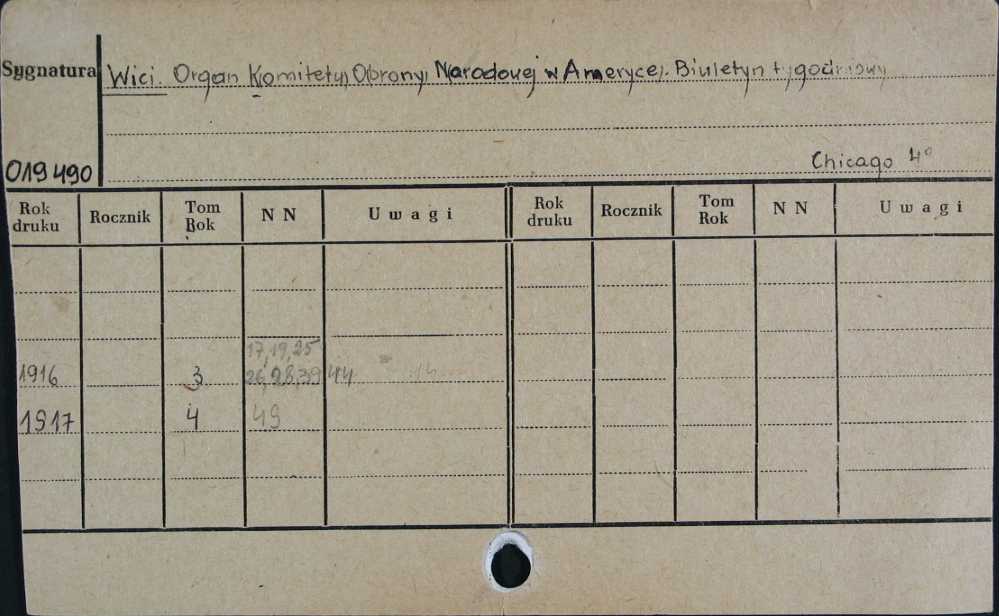 Sygnatura Wici. Organ Komitetu Obrony Narodowej w Ameryce. Biuletyn tygodniowy
019490 Chicago 4°
Rok druku Rocznik Tom Rok N N Uwagi Rok druku Rocznik Tom Rok N N Uwagi
17, 19, 25
1916 3 26, 28, 39 44
1917 4 49